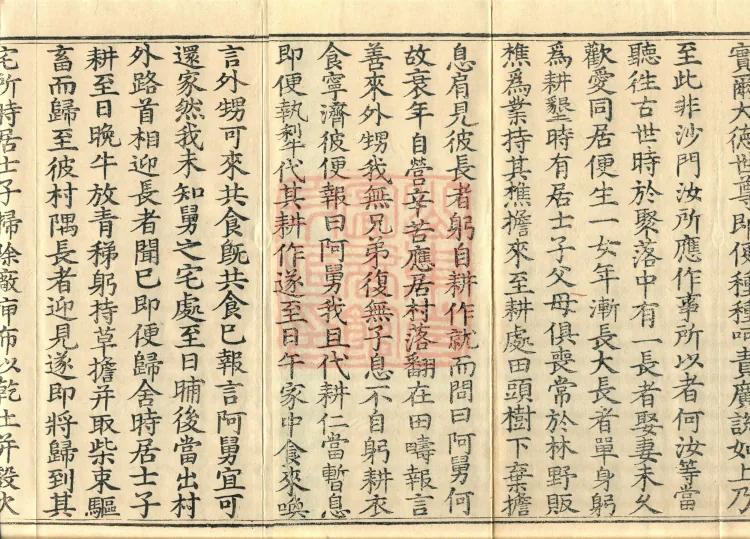 實爾大德世尊即便種種呵責廣說如上乃
至此非沙門汝所應作事所以者何汝等當
聽往古世時於聚落中有一長者娶妻未久
歡愛同居便生一女年漸長大長者單身躬
為耕墾時有居士子父母俱喪常於林野販
樵為業持其樵擔來至耕處田頭樹下棄擔
息肩見彼長者躬自耕作就而問曰阿舅何
故衰年自營辛苦應居村落翻在田疇報言
善來外甥我無兄弟復無子息不自躬耕衣
食寧濟彼便報曰阿舅我且代耕仁當暫息
即便執犁代其耕作遂至日午家中食來喚
言外甥可來共食既共食已報言阿舅宜可
還家然我未知舅之宅處至日晡後當出村
外路首相迎長者聞已即便歸舍時居士子
耕至日晚牛放青稊躬持草擔并取柴束驅
畜而歸至彼村隅長者迎見遂即將歸到其
宅所時居士子掃除廠布以乾土并設火